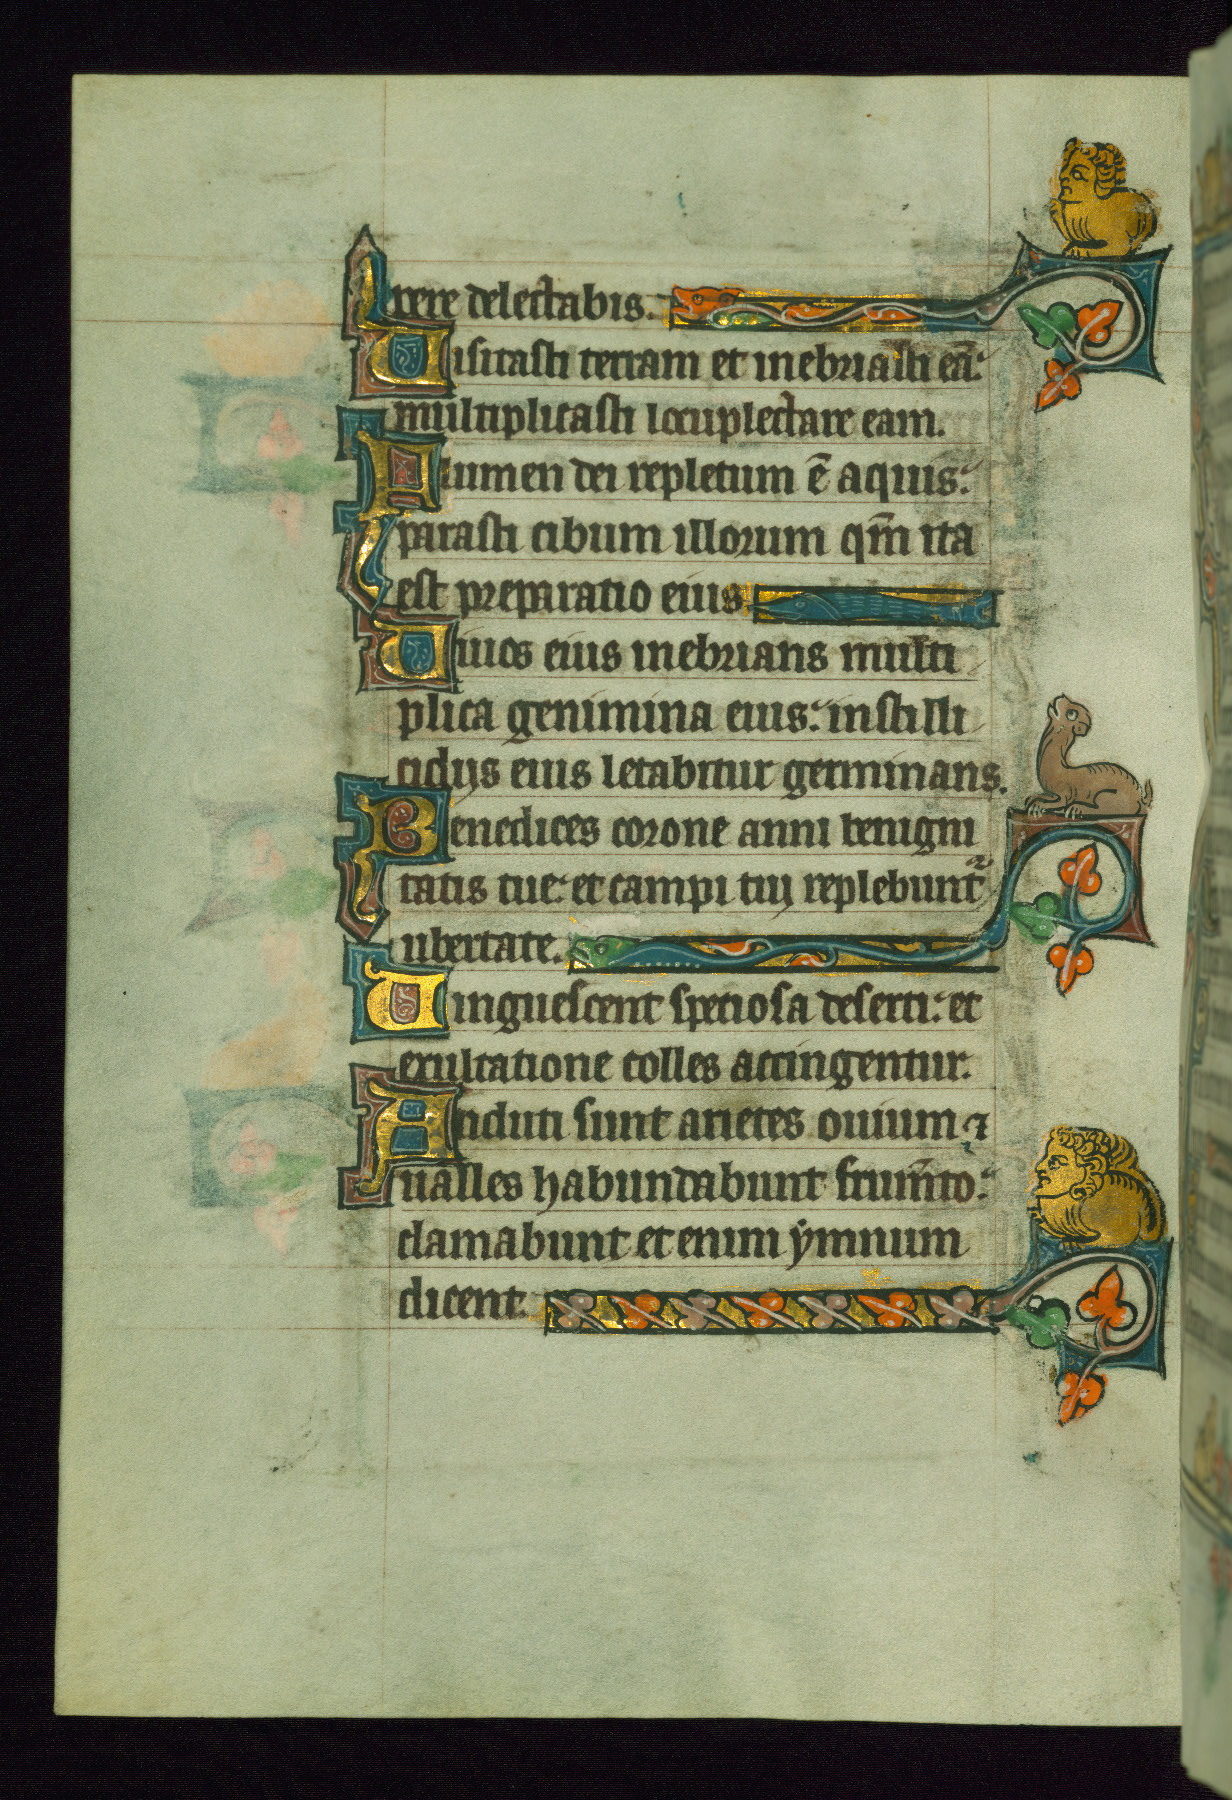 rere delectabis.
Uisitasti terram et inebriasti eā:
multiplicasti locuplectare eam.
Flumen dei repletum ē aquis:
parasti cibum illorum qm̄ ita
est preparatio eius
Riuos eius inebrians multi
plica genimina eius: in stilli
cidijs eius letabitur germinans.
Benedices corone anni benigni
tatis tue: et campi tui replebunt᷑
ubertate.
Pinguescent speciosa deserti: et
exultatione colles accingentur.
Induti sunt arietes ouium ⁊
ualles habundabunt frum̄to:
clamabunt et enim ẏmnum
dicent.